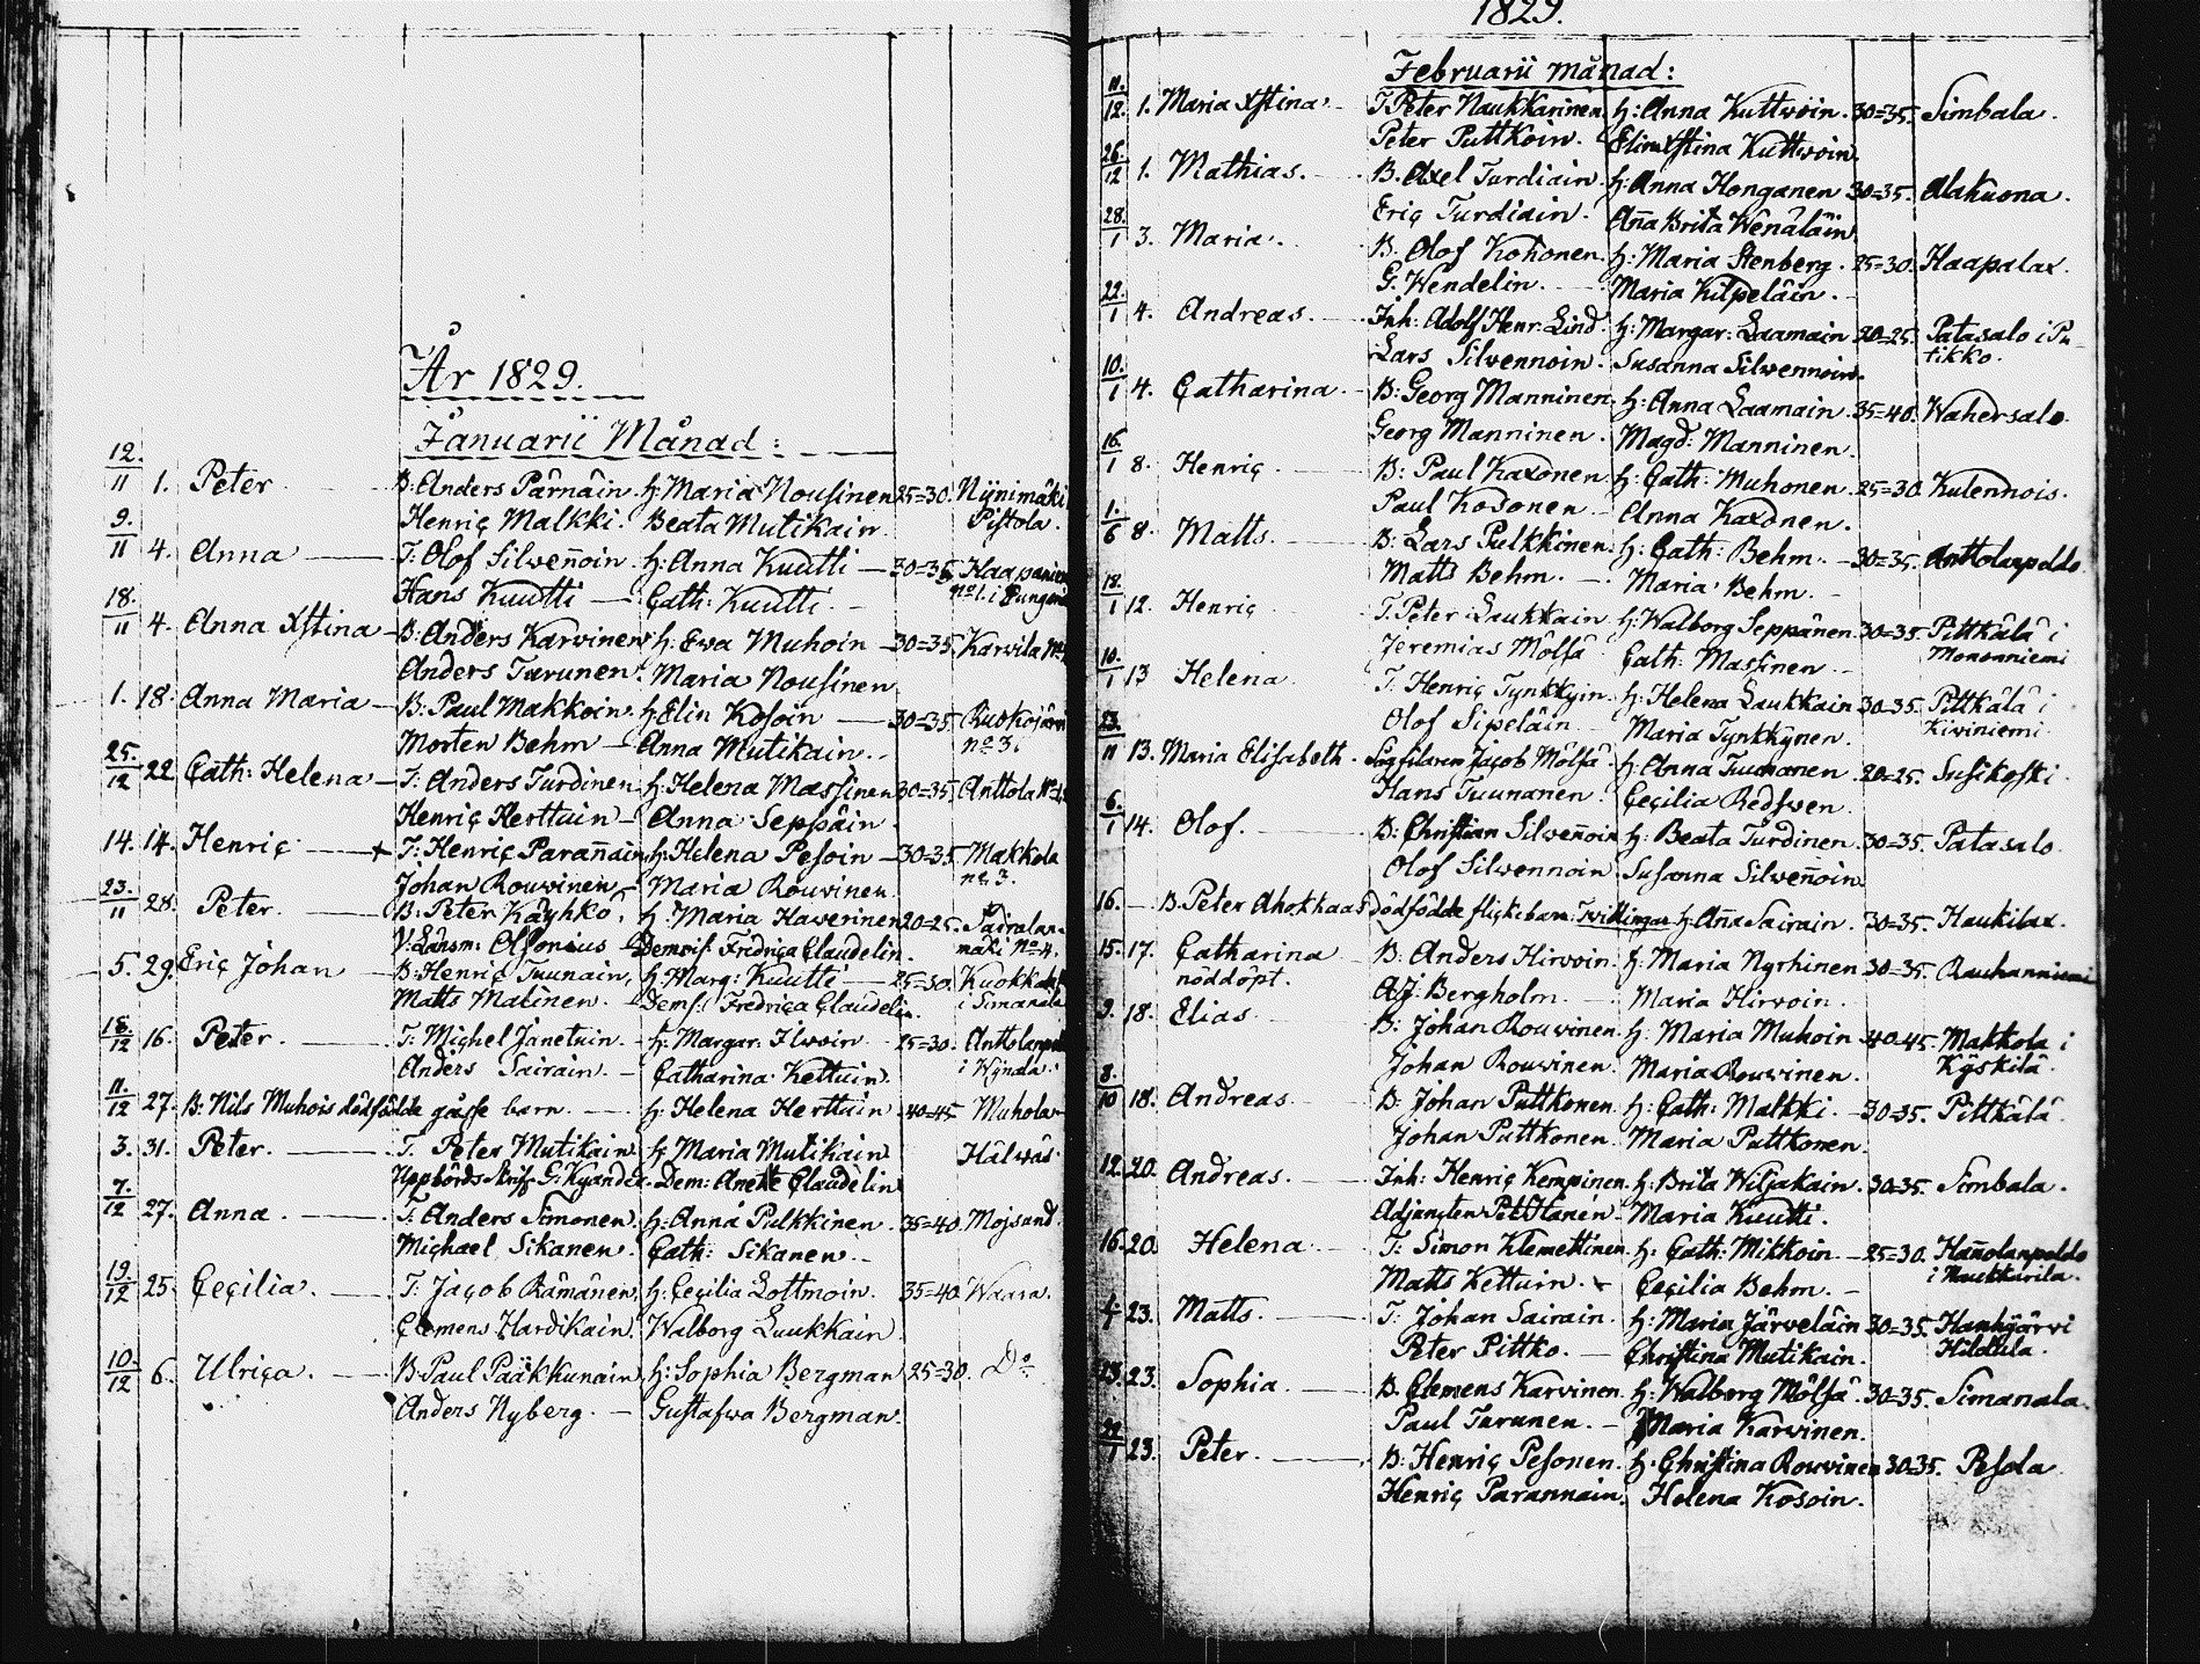 År 1829.
Januarii Månad:
12./11 1. Peter B: Anders Pärnäin. H: Maria Nousinen 25=30. Nijnimäki
Henric Malkki. Beata Mutikain Pistola.
9./11 4. Anna T: Olof Silwen̄oin. H: Anna Kuutti 30=35. Haapaniem
Hans Kuutti Cath: Kuutti. No 1. i Pungan
18./11 4. Anna Xstina B: Anders Karvinen H: Ewa Muhoin 30=35. Karvila No
Anders Turunen. Maria Nousinen
1. 18. Anna Maria B: Paul Makkoin. H: Elin Kosoin 30=35. Ruokojärvi
Morten Behm Anna Mutikain. no 3.
25./12 22. Cath: Helena T: Anders Turdinen H: Helena Massinen 30=35. Anttola No
Henric Herttuin Anna Seppäin
14. 14. Henric + T: Henric Paran̄ain H: Helena Pesoin 30=35. Makkola
Johan Rouvinen Maria Rouvinen no 3.
23./11 28. Peter. B: Peter Käyhkö, H. Maria Haverinen 20=25. Sairalan=
V: Länsm: Olsonius Demois. Fredrica Claudelin. mäki No 4.
5. 29. Eric Johan B: Henric Tuunain, H: Marg: Kuutti 25=30. Kuokka
Matts Malinen. Dems: Fredrica Claudelin. i Simanala
18./12 16. Peter. T: Michel Janetuin. H: Margar: Ilwoin 25=30. Anttolanp
Anders Sairain. Catharina Kettuin. i Wÿnala.
11./12 27. B: Nils Muhois dödfödde gåsse barn. H: Helena Herttuin 40=45 Muhola
3. 31. Peter. T. Peter Mutikain H: Maria Mutikain Hälwäs
Uppbörds Skrifv. G: Kyander. Dem: Anette Claudelin
7./12 27. Anna. T: Anders Simonen. H: Anna Pulkkinen. 35=40. Mojsund.
Michael Sikanen. Cath: Sikanen.
19./12 25. Cecilia. T: Jacob Rämänen, H: Cecilia Lottmoin. 35=40. Waara.
Clemens Hardikain. Walborg Luukkain.
10./12 6. Ulrica. B: Paul Pääkkunain, H: Sophia Bergman 25=30. Do
Anders Nyberg. Gustafva Bergman.
1829.
Februarii månad:
11./12. 1. Maria Xstina. T. Peter Naukkarinen. H: Anna Kuttwoin. 30=35. Simbala.
Peter Puttkoin. Elin Xstina Kuttwoin.
26./12 1. Mathias. B. Axel Turdiain. H: Anna Honganen 30=35. Alakuona.
Eric Turdiain. An̄a Brita Wenäläin.
28./1 3. Maria. B. Olof Kohonen. H: Maria Stenberg. 25=30. Haapalax.
G. Wendelin. Maria Kilpeläin.
22./1 4. Andreas. Inh: Adolf Henr: Lind. H: Margar: Laamain 20=25. Patasalo i Pu
Lars Silvennoin. Susanna Silvennoin. tikko.
10./1 4. Catharina. B: Georg Manninen. H: Anna Laamain. 35=40. Wahersalo.
Georg Manninen. Magd: Manninen.
16./1 8. Henric. B: Paul Kaxonen. H: Cath: Muhonen. 25=30. Kulennois.
Paul Kosonen. Anna Kaxonen.
1./6 8. Matts. B: Lars Pulkkinen. H: Cath: Behm. 30=35. Anttolanpeldo
Matts Behm. Maria Behm.
18./1 12. Henric T. Peter Laukkain. H: Walborg Seppänen. 30=35. Pittkälä i
Jeremias Mölsä Cath: Massinen Mononniemi
10./1 13 Helena. T. Henric Tynkkyin. H: Helena Laukkain 30=35. Pittkälä i
Olof Sipeläin. Maria Tynkkÿnen. Kiviniemi
23./11 13. Maria Elisabeth. Sågfilaren Jacob Mölsä. H: Anna Tuunanen. 20=25. Susikoski.
Hans Tuunanen. Cecilia Redswen.
6./1 14. Olof. B: Christian Silwen̄oin H: Beata Turdinen. 30=35. Patasalo.
Olof Silvennoin. Susanna Silwen̄oin.
16. B. Peter Ahokkaas dödfödde flickebarn. Twillingar H: An̄a Sairain. 30=35. Haukilax.
15. 17. Catharina B: Anders Hirvoin. H: Maria Nyrhinen 30=35. Rauhanniemi
nöddöpt. A.J. Bergholm. Maria Hirvoin.
9. 18. Elias. B: Johan Rouvinen. H: Maria Muhoin 40=45. Makkola i
Johan Rouvinen. Maria Rouvinen. Kÿskilä.
8./10 18. Andreas B: Johan Puttkonen H: Cath: Malkki. 30=35. Pittkälä.
Johan Puttkonen. Maria Puttkonen.
12. 20. Andreas. Inh: Henric Kempinen. H: Brita Wiljakain. 30=35. Simbala.
Adjuncten Pet. Hanén. Maria Kuutti.
16. 20 Helena. T: Simon Klemettinen H: Cath: Mikkoin. 25=30. Han̄olanpeldo
Matts Kettuin. Cecilia Behm. i Naukkarila.
23. Matts. T: Johan Sairain. H: Maria Järveläin 30=35. Hanhijärvi
Peter Pittko. Christina Mutikain. Hildula.
23. 23. Sophia. B. Clemens Karvinen. H: Walborg Mölsä. 30=35. Simanala.
Paul Turunen. Maria Karvinen.
22./1 23. Peter. B: Henric Pesonen. H: Christina Rouvinen 30=35. Pesola.
Henric Parannain. Helena Kosoin.